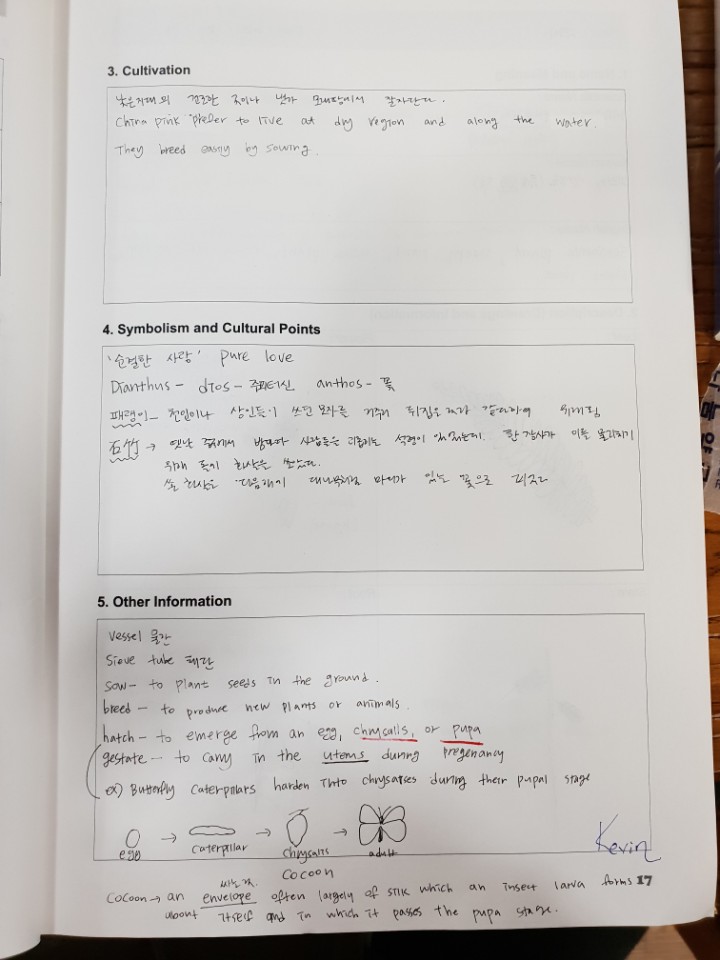 3. Cultivation
낮은지대의 건조한 곳이나 냇가 모래땅에서 잘자란다.
China pink prefer to live at dry region and along the water.
They breed easily by sowing.
4. Symbolism and Cultural Points
'순결한 사랑' pure love
Dianthus - dios - 주피터신 anthos - 꽃
패랭이 - 천인이나 상인들이 쓰던 모자를 거꾸로 뒤집은 것과 같다하여
石竹 → 옛날 중국에서 밤마다 사람들을 괴롭히는 석령이 있었는데. 한 장사가 이를 물리치기
위해 돌에 화살을 쏘았다.
쏜 화살은 다음해에 대나무처럼 마디가 있는 꽃으로 피었다
5. Other Information
Vessel 물관
Sieve tube 체관
sow - to plant seeds in the ground.
breed - to produce new plants or animals.
hatch - to emerge from an egg, chrycalis, or pupa
gestate - to carry in the uterus during pregenancy
ex) Butterfly caterpillars harden into chrysalises during their pupal stage
egg caterpillar chrysalis adult Kevin
Cocoon
싸는것.
Cocoon → an envelope often largely of silk which an insect larva forms 17
about itself and in which it passes the pupa stage.